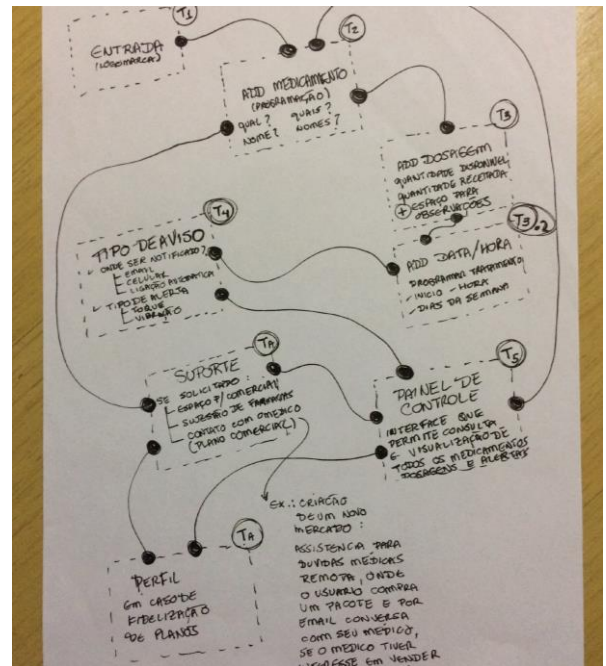 T1
ENTRADA
(LOGOMARCA)
T2
ADD MEDICAMENTO
(PROGRAMAÇÃO)
QUAL? QUAIS?
NOME? NOMES?
T3
ADD DOSAGEM
QUANTIDADE DISPONÍVEL
QUANTIDADE RECEITADA
+ ESPAÇO PARA
OBSERVAÇÕES
T3.2
ADD DATA/HORA
PROGRAMAR TRATAMENTO
- INICIO - HORA
- DIAS DA SEMANA
T4
TIPO DE AVISO
ONDE SER NOTIFICADO?
EMAIL
CELULAR
LIGAÇÃO AUTOMÁTICA
TIPO DE ALERTA
TOQUE
VIBRAÇÃO
TA
SUPORTE
SE SOLICITADO:
ESPAÇO P/ COMERCIAL
SUGESTÃO DE FARMACIAS
CONTATO COM O MEDICO
(PLANO COMERCIAL)
T5
PAINEL DE
CONTROLE
INTERFACE QUE
PERMITE CONSULTA
E VISUALIZAÇÃO DE
TODOS OS MEDICAMENTOS
DOSAGENS E ALERTAS
TA
PERFIL
EM CASO DE
FIDELIZAÇÃO
DE PLANOS
EX.: CRIAÇÃO
DE UM NOVO
MERCADO:
ASSISTENCIA PARA
DUVIDAS MÉDICAS
REMOTA, ONDE
O USUARIO COMPRA
UM PACOTE E POR
EMAIL CONVERSA
COM SEU MEDICO,
SE O MEDICO TIVER
EM VENDER